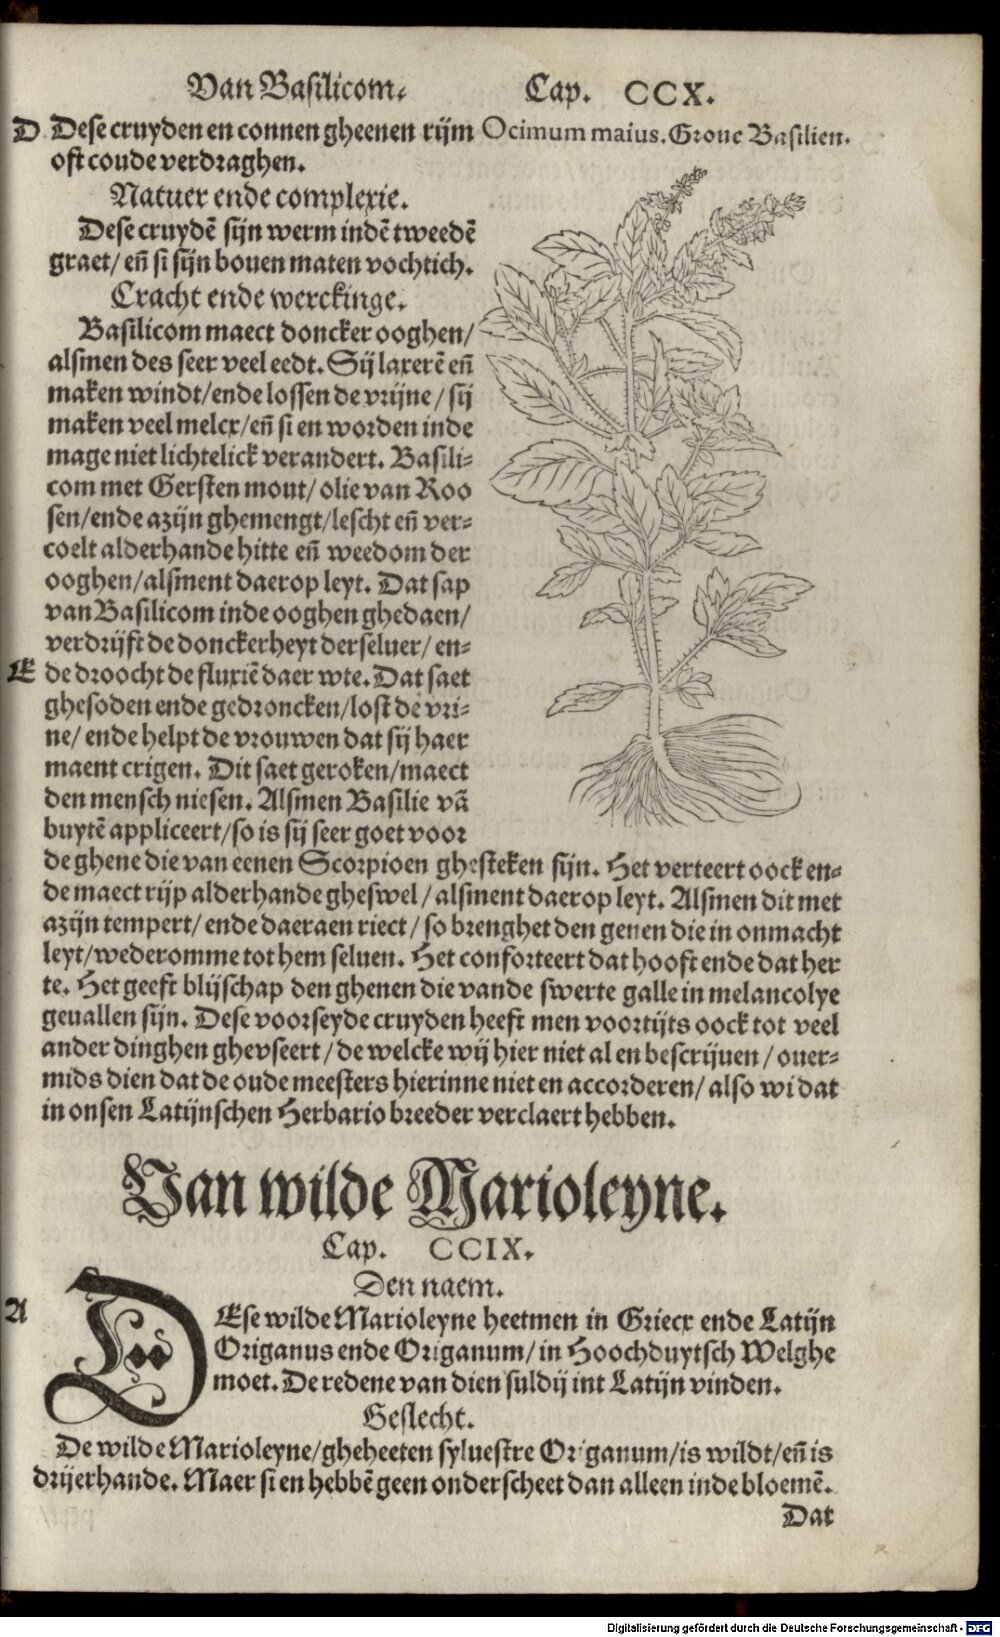 Van Basilicom. Cap. CCX.
D Dese cruyden en connen gheenen rijm
oft coude verdraghen.
Ocimum maius. Groue Basilien.
Natuer ende complexie.
Dese cruydē sijn werm indē tweedē
graet/ eñ si sijn bouen maten vochtich.
Cracht ende werckinge.
Basilicom maect doncker ooghen/
alsmen des seer veel eedt. Sij laxerē eñ
maken windt/ende lossen de vrijne/ sij
maken veel melcx/eñ si en worden inde
mage niet lichtelick verandert. Basili-
com met Gersten mout/ olie van Roo
sen/ende azijn ghemengt/lescht eñ ver-
coelt alderhande hitte eñ weedom der
ooghen/alsment daer op leyt. Dat sap
van Basilicom inde ooghen ghedaen/
verdrijft de donckerheyt der seluer/ en-
E de droocht de fluxiē daer wte. Dat saet
ghesoden ende gedroncken/lost de vri-
ne/ ende helpt de vrouwen dat sij haer
maent crigen. Dit saet geroken/maect
den mensch niesen. Alsmen Basilie vā
buytē appliceert/so is sij seer goet voor
de ghene die van eenen Scorpioen ghesteken sijn. Het verteert oock en-
de maect rijp alderhande gheswel/ alsment daer op leyt. Alsmen dit met
azijn tempert/ ende daer aen riect/ so brenghet den genen die in onmacht
leyt/wederomme tot hem seluen. Het conforteert dat hooft ende dat her
te. Het geeft blijschap den ghenen die vande swerte galle in melancolye
geuallen sijn. Dese voorseyde cruyden heeft men voortijts oock tot veel
ander dinghen ghevseert/ de welcke wij hier niet al en bescrijuen/ ouer-
mids dien dat de oude meesters hierinne niet en accorderen/ also wi dat
in onsen Latijnschen Herbario breeder verclaert hebben.
Van wilde Marioleyne.
Cap. CCIX.
Den naem.
A DEse wilde Marioleyne heetmen in Griecx ende Latijn
Origanus ende Origanum/ in Hoochduytsch Welghe
moet. De redene van dien suldij int Latijn vinden.
Geslecht.
De wilde Marioleyne/gheheeten syluestre Origanum/is wildt/eñ is
drijerhande. Maer si en hebbē geen onderscheet dan alleen inde bloemē.
Dat
Digitalisierung gefördert durch die Deutsche Forschungsgemeinschaft - DFG